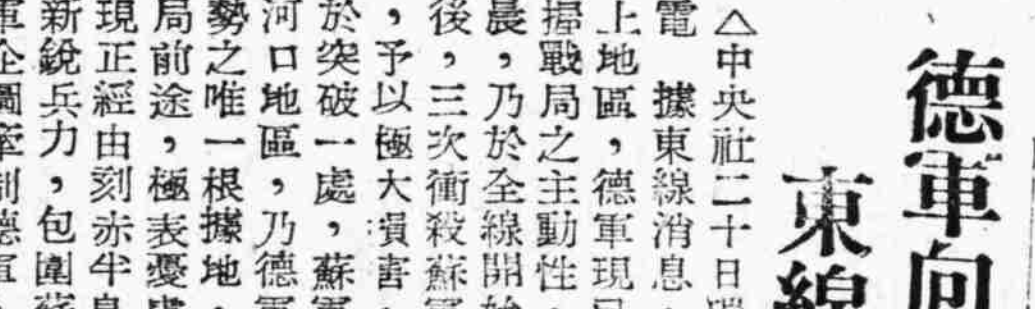 德軍向
東線
△中央社二十日
電　據東線消息
上地區，德軍現
掃戰局之主動性
晨，乃於全線開始
後，三次衝殺蘇軍
，予以極大損害
於突破一處，蘇軍
河口地區，乃德軍
勢之唯一根據地，
局前途，極表憂慮
現正經由刻赤半島
新銳兵力，包圍蘇
軍企圖牽制德軍